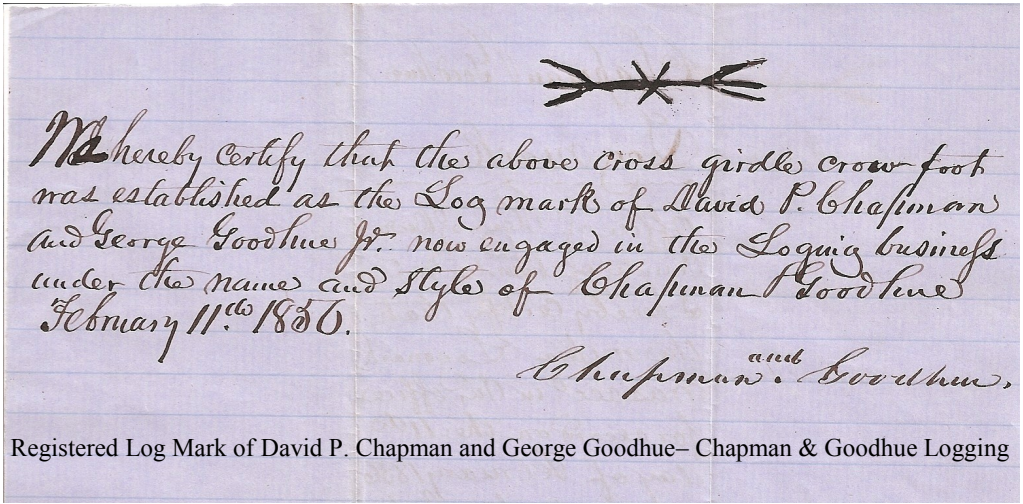 We hereby certify that the above cross girdle crow foot
was established as the Log mark of David P. Chapman
and George Goodhue Jr. now engaged in the Loging business
under the name and style of Chapman & Goodhue
February 11th 1856.
Chapman and Goodhue.
Registered Log Mark of David P. Chapman and George Goodhue– Chapman & Goodhue Logging